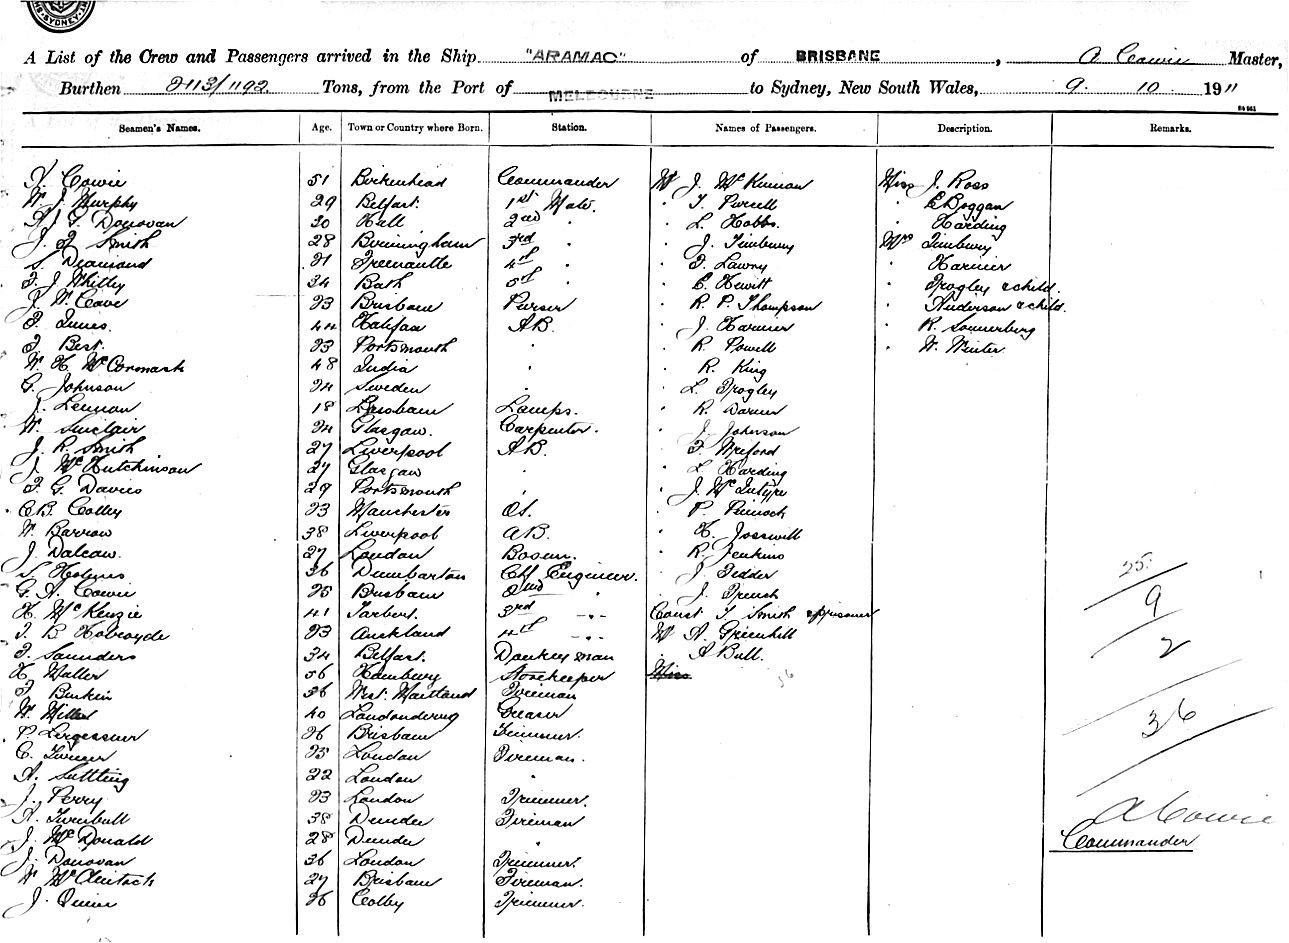 SYDNEY
A List of the Crew and Passengers arrived in the Ship "ARAMAC" of BRISBANE, A Cowie Master,
Burthen 2113/1192 Tons, from the Port of MELBOURNE to Sydney, New South Wales, 9 10 1911
Seamen's Names. Age. Town or Country where Born. Station. Names of Passengers. Description. Remarks.
A. Cowie 51 Birkenhead Commander Mr J. McKiernan Miss J. Ross
W. J. Murphy 29 Belfast. 1st Mate. " T. Purcell " E Boggan
A J G. Donovan 30 Hull 2nd " " L. Hobbs. " Harding
J. F. Smith 28 Birmingham 3rd " " J. Timbury Mrs Timbury
S. Diamond 21 Fremantle 4th " " F. Lawry " Harmer
F. J Whitley 34 Bath 5th " " C. Hewitt " Trogley & child.
J. W. Cave 23 Brisbane Purser " R. P. Thompson " Anderson & child.
F. Innes. 44 Halifax A.B. " J. Harmer " R. Sonnerberg
F. Best. 23 Portsmouth " " R. Powell " W. Winter
W. H. McCormack 48 India " " R. King
G. Johnson 24 Sweden " " L. Trogley
J. Lennon 18 Brisbane Lamps. " R. Darner
W. Sinclair 24 Glasgow. Carpenter. " J. Johnson
J. R. Smith 27 Liverpool A.B. " F. Wriford
J. McHutchinson 27 Glasgow " " L Harding
F. G. Davies 29 Portsmouth " " J. McIntyre
C B. Colley 23 Manchester OS. " P. Pinnock
W. Barrow 38 Liverpool A.B. " H. Josswill
J. Dalcaw. 27 London Bosun. " R. Jenkins
Holmes 36 Dumbarton Chf Engineer. " J. Tedder 25
G. A. Cowie 25 Brisbane 2nd " " J. French 9
H. McKenzie 41 Tarbert. 3rd " Const. T. Smith & prisoner
T. B Holroyde 23 Auckland 4th " Mr A. Greenhill 2
F. Saunders 34 Belfast. Donkeyman " A Bull.
H. Waller 56 Hamburg Storekeeper Miss 36
F. Binkin 36 West Maitland Fireman
W. Millar 40 Londonderry Greaser 36
P. 26 Brisbane Trimmer.
C. Turner 25 London Fireman.
A. Suttling 22 London "
J. Perry 23 London Trimmer.
A. Turnbull 38 Dundee Fireman A Cowie
J. McDonald 28 Dundee " Commander
J. Donovan 36 London Trimmer.
W McClintock 27 Brisbane Fireman.
J. Quinn 26 Colby Trimmer.